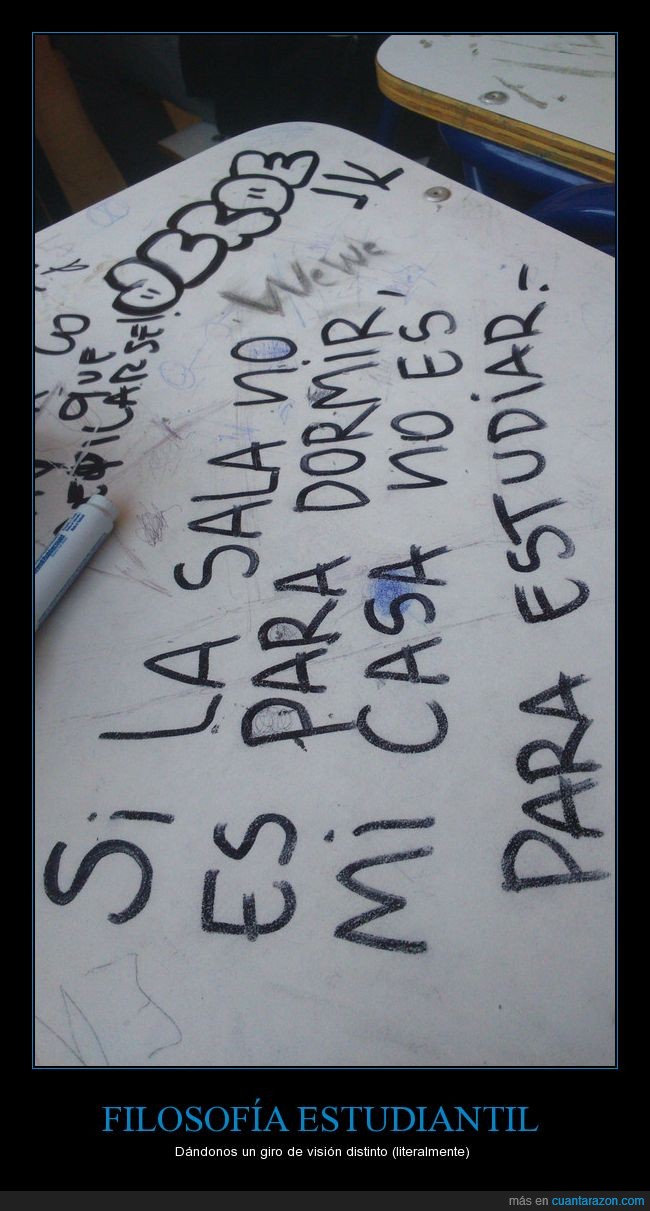 Si LA SALA NO
ES PARA DORMIR,
Mi CASA NO ES
PARA ESTUDiAR=
WeWe
JK
QUE
FILOSOFÍA ESTUDIANTIL
Dándonos un giro de visión distinto (literalmente)
más en cuantarazon.com